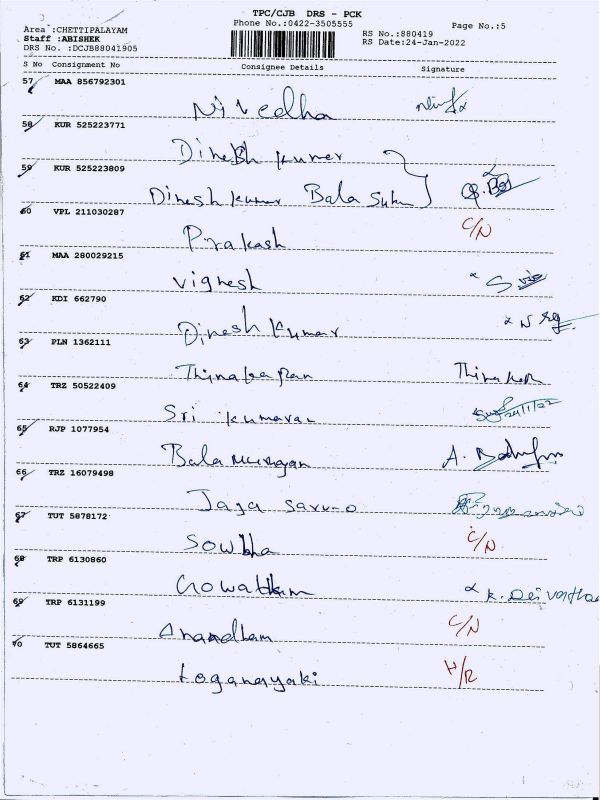 TPC/CJB DRS - PCK
Phone No.:0422-3505555
Page No.:5
Area :CHETTIPALAYAM
Staff :ABISHEK
DRS No. :DCJB88041905
RS No.:880419
RS Date:24-Jan-2022
S No Consignment No Consignee Details Signature
57 MAA 856792301
Nivedha
58 KUR 525223771
Dinesh kumer
59 KUR 525223809
Dinesh kumar Bala
60 VPL 211030287
Prakash C/N
61 MAA 280029215
Vignesh
62 KDI 662790
Dinesh Kumar
63 PLN 1362111
Thinakaran
64 TRZ 50522409
Sri kumaran 24/1/22
65 RJP 1077954
Bala murugan A.
66 TRZ 16079498
Jaga
67 TUT 5878172
Sowbha C/N
68 TRP 6130860
Gowatham K.
69 TRP 6131199
Anandham C/N
70 TUT 5864665
Loganayaki H/R